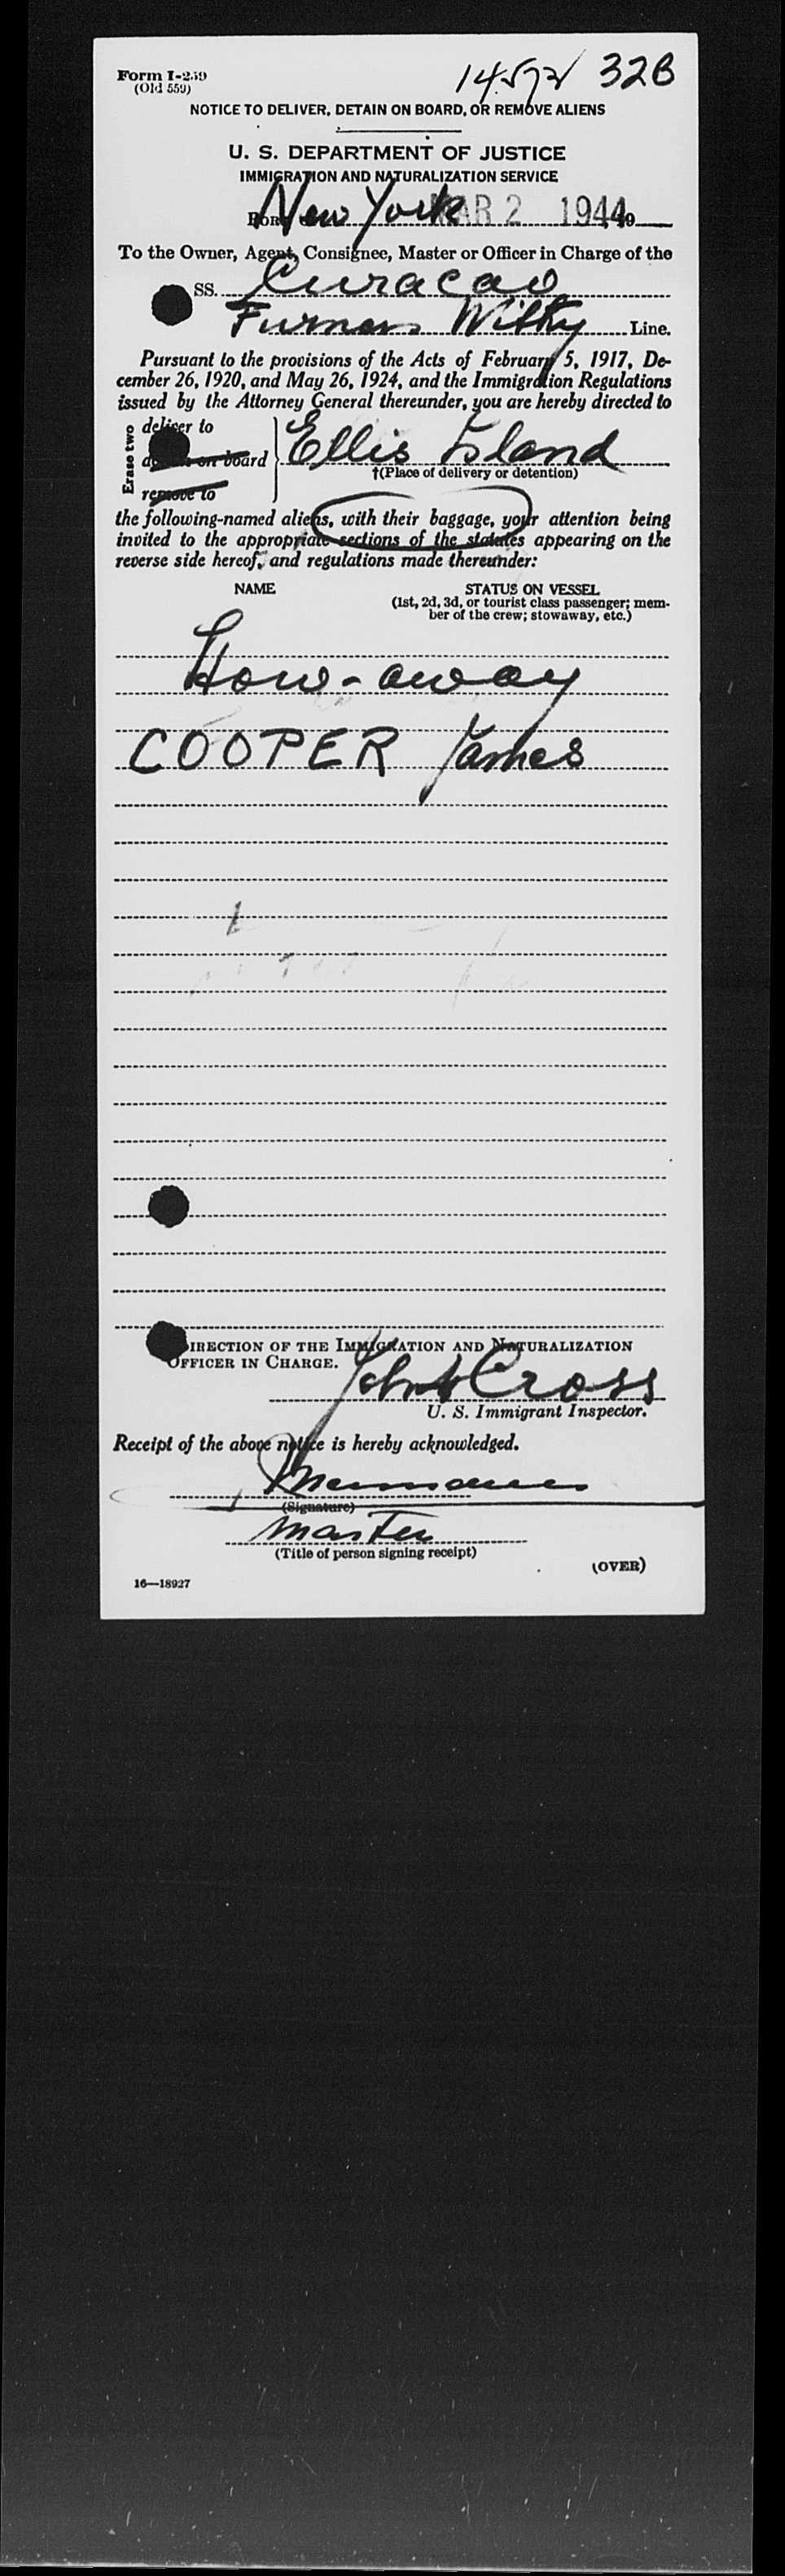 Form I-259
(Old 559)
14572 32B
NOTICE TO DELIVER, DETAIN ON BOARD, OR REMOVE ALIENS
U. S. DEPARTMENT OF JUSTICE
IMMIGRATION AND NATURALIZATION SERVICE
New York MAR 2 1944
To the Owner, Agent, Consignee, Master or Officer in Charge of the
SS. Curacao
Furness Withy Line.
Pursuant to the provisions of the Acts of February 5, 1917, De-
cember 26, 1920, and May 26, 1924, and the Immigration Regulations
issued by the Attorney General thereunder, you are hereby directed to
Erase two
deliver to
on board
remove to
Ellis Island
†(Place of delivery or detention)
the following-named aliens, with their baggage, your attention being
invited to the appropriate sections of the statutes appearing on the
reverse side hereof, and regulations made thereunder:
NAME STATUS ON VESSEL
(1st, 2d, 3d, or tourist class passenger; mem-
ber of the crew; stowaway, etc.)
Stow-away
COOPER James
DIRECTION OF THE IMMIGRATION AND NATURALIZATION
OFFICER IN CHARGE.
John Cross
U. S. Immigrant Inspector.
Receipt of the above notice is hereby acknowledged.
(Signature)
Master
(Title of person signing receipt)
(OVER)
16—18927